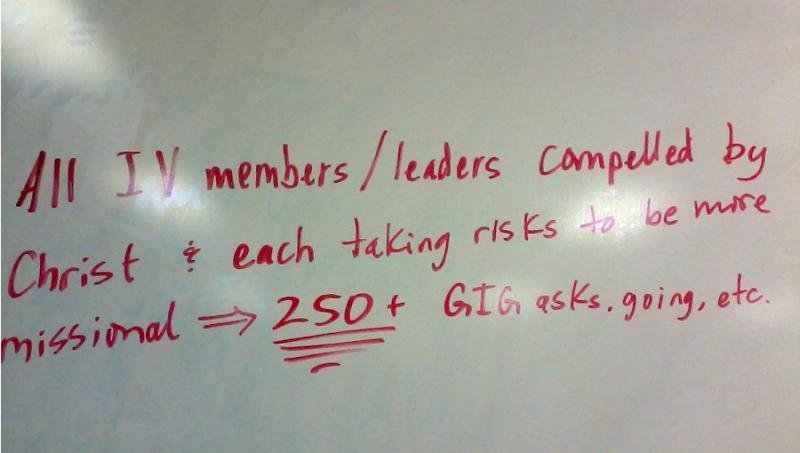 All IV members/leaders compelled by
Christ & each taking risks to be more
missional ⇒ 250+ GIG asks, going, etc.